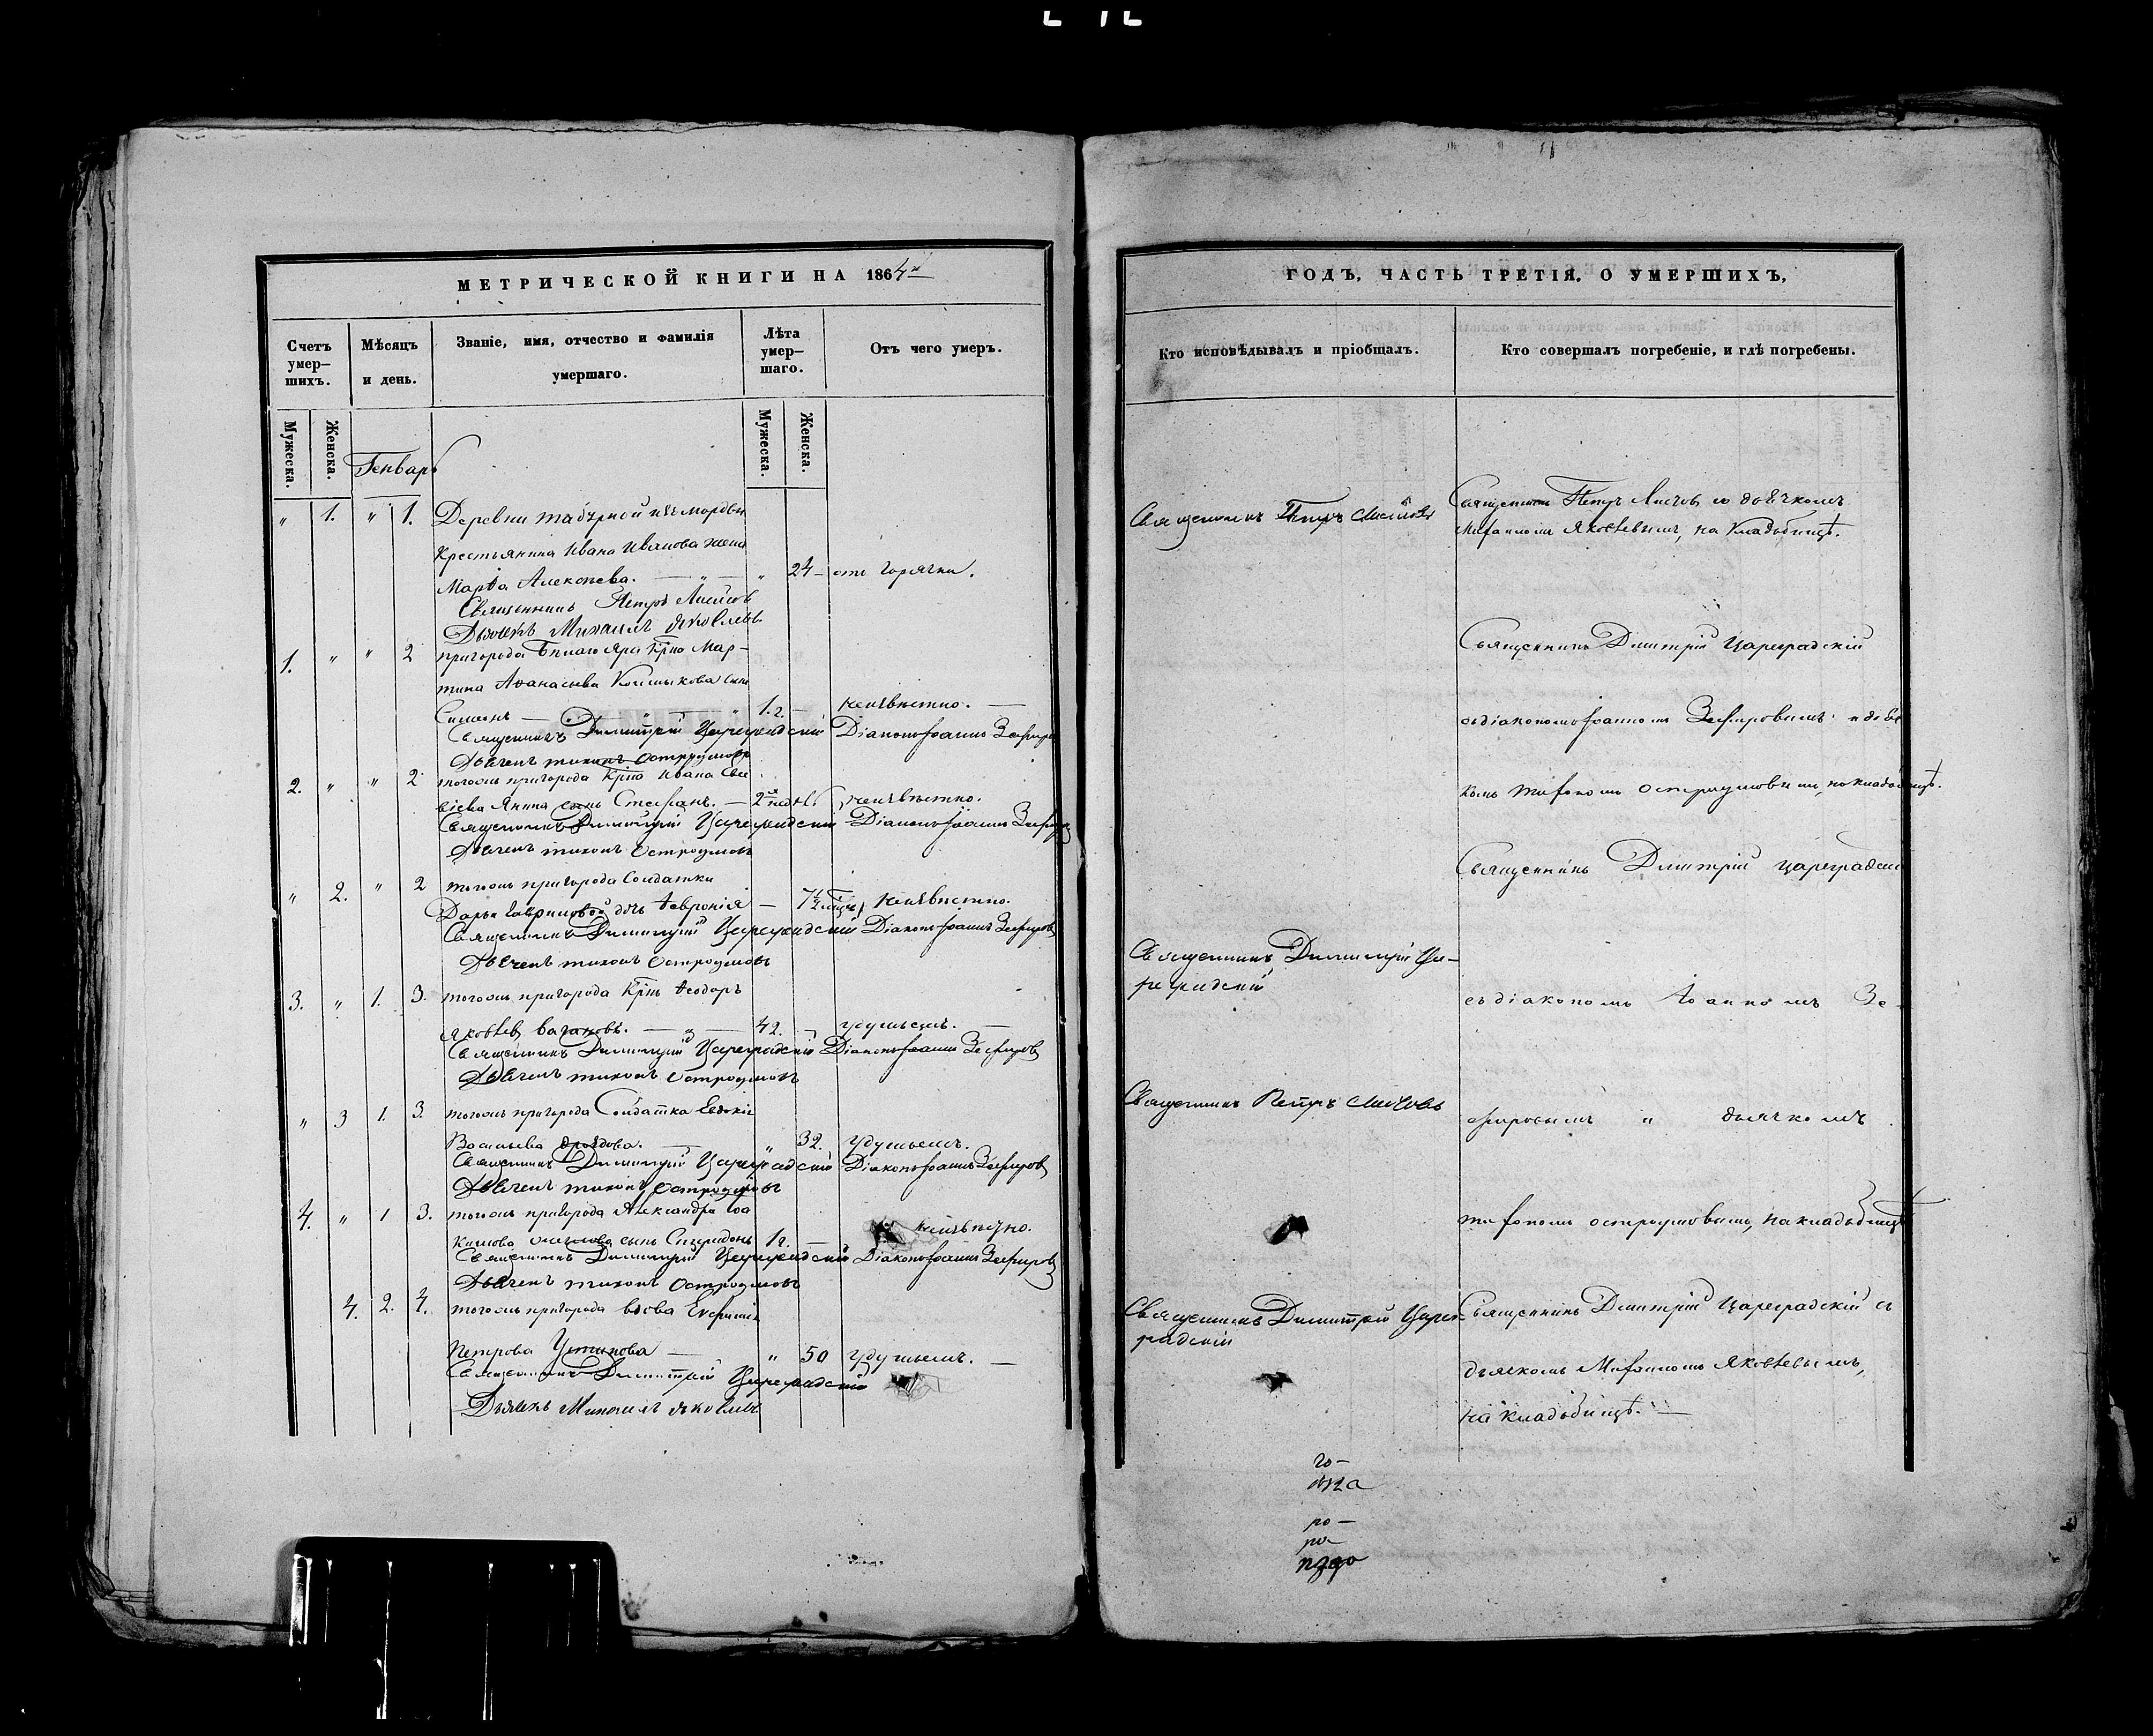 МЕТРИЧЕСКОЙ КНИГИ НА 1864й
Счетъ умер-
шихъ.
Мѣсяцъ
и день.
Званіе, имя, отчество и фамилія
умершаго.
Лѣта
умер-
шаго.
Отъ чего умеръ.
Мужеска.
Женска.
Генварь
Мужеска.
Женска.
" 1. " 1. Деревни изъ мордвы
крестьянина Ивана Иванова жена
Марѳа Алексѣева. — " — " 24 — отъ горячки.
Священникъ Петръ
Дьячекъ Михаилъ Яковлевъ
1. " " 2 пригорода Бѣлаго Яра Крно Мар-
тина Аѳанасьева сынъ
Симеонъ — " — " 1 г. — неизвѣстно. —
Священникъ Димитрій Цареградскій Діаконъ Іоаннъ Зефировъ
Дьячекъ Тихонъ Остроумовъ
2. " " 2 тогожъ пригорода Крно Ивана
сынъ Стефанъ. — 2 недѣль неизвѣстно.
Священникъ Димитрій Цареградскій Діаконъ Іоаннъ Зефировъ
Дьячекъ Тихонъ Остроумовъ
" 2. " 2 тогожъ пригорода Солдатки
Дарьи Гавриловой дочь Ѳевронія — 7½ мѣсяц. неизвѣстно.
Священникъ Димитрій Цареградскій Діаконъ Іоаннъ Зефировъ
Дьячекъ Тихонъ Остроумовъ
3. " 1. 3. тогожъ пригорода Крнъ Ѳеодоръ
Яковлев — " — 42. — удушьемъ. —
Священникъ Димитрій Цареградскій Діаконъ Іоаннъ Зефировъ
Дьячекъ Тихонъ Остроумовъ
" 3 1. 3. тогожъ пригорода Солдатка Евдокія
Васильева — " 32. удушьемъ.
Священникъ Димитрій Цареградскій Діаконъ Іоаннъ Зефировъ
Дьячекъ Тихонъ Остроумовъ
4. " 1 3. тогожъ пригорода Александра Іоа
кимова сынъ Спиридонъ 1 г. — неизвѣстно.
Священникъ Димитрій Цареградскій Діаконъ Іоаннъ Зефировъ
Дьячекъ Тихонъ Остроумовъ
4. 2. 4. тогожъ пригорода вдова Евфимія
Петрова Устинова — " 50 удушьемъ. —
Священникъ Димитрій Цареградскій
Дьячекъ Михаилъ Яковлевъ
ГОДЪ, ЧАСТЬ ТРЕТІЯ, О УМЕРШИХЪ,
Кто исповѣдывалъ и пріобщалъ.
Кто совершалъ погребеніе, и гдѣ погребены.
Священникъ Петръ
Священникъ Петръ со дьячкомъ
Михаиломъ Яковлевымъ, на кладбищѣ.
Священникъ Димитрій Цареградскій
съ діакономъ Іоанномъ Зефировымъ и дьяч
комъ Тихономъ Остроумовымъ, на кладбищѣ.
Священникъ Димитрій Цареградскій
Священникъ Димитрій Ца-
реградскій
съ діакономъ Іоанномъ Зе-
Священникъ Петръ
фировымъ и дьячкомъ
Тихономъ Остроумовымъ, на кладбищѣ
Священникъ Димитрій Царе-
градскій
Священникъ Димитрій Цареградскій съ
дьячкомъ Михаиломъ Яковлевымъ,
на кладбищѣ. —
го-
ро-
ро-